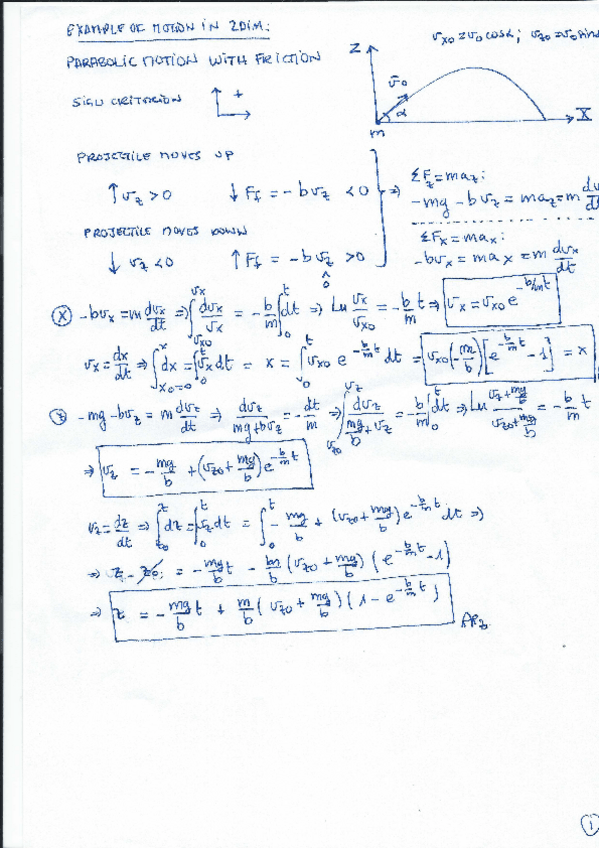 EXAMPLE OF MOTION IN 2DIM:
v_x0 = v_0 cosα ; v_z0 = v_0 sinα
PARABOLIC MOTION WITH FRICTION
Z v̄_0 α m X
SIGN CRITERION +
PROJECTILE MOVES UP
↑ v_z > 0 ↓ F_f = -b v_z < 0 ⇒
ΣF_z = m a_z :
-mg - b v_z = m a_z = m dv_z/dt
PROJECTILE MOVES DOWN
↓ v_z < 0 ↑ F_f = -b v_z > 0
^
0
ΣF_x = m a_x :
-b v_x = m a x = m dv_x/dt
(X) -b v_x = m dv_x/dt ⇒ ∫_{v_x0}^{v_x} dv_x/v_x = -b/m ∫_0^t dt ⇒ Ln v_x/v_x0 = -b/m t ⇒ v_x = v_x0 e^{-b/m t}
v_x = dx/dt ⇒ ∫_{x_0=0}^x dx = ∫_0^t v_x dt = x = ∫_0^t v_x0 e^{-b/m t} dt = v_x0 (-m/b) [e^{-b/m t} - 1] = x
(Z) -mg - b v_z = m dv_z/dt ⇒ dv_z/(mg + b v_z) = -dt/m ⇒ ∫_{v_z0}^{v_z} dv_z/(mg/b + v_z) = -b/m ∫_0^t dt ⇒ Ln (v_z + mg/b)/(v_z0 + mg/b) = -b/m t
⇒ v_z = -mg/b + (v_z0 + mg/b) e^{-b/m t}
v_z = dz/dt ⇒ ∫_{z_0}^z dz = ∫_0^t v_z dt = ∫_0^t -mg/b + (v_z0 + mg/b) e^{-b/m t} dt ⇒
⇒ z - z_0 = -mg/b t - m/b (v_z0 + mg/b) (e^{-b/m t} - 1)
⇒ z = -mg/b t + m/b (v_z0 + mg/b) (1 - e^{-b/m t})
1